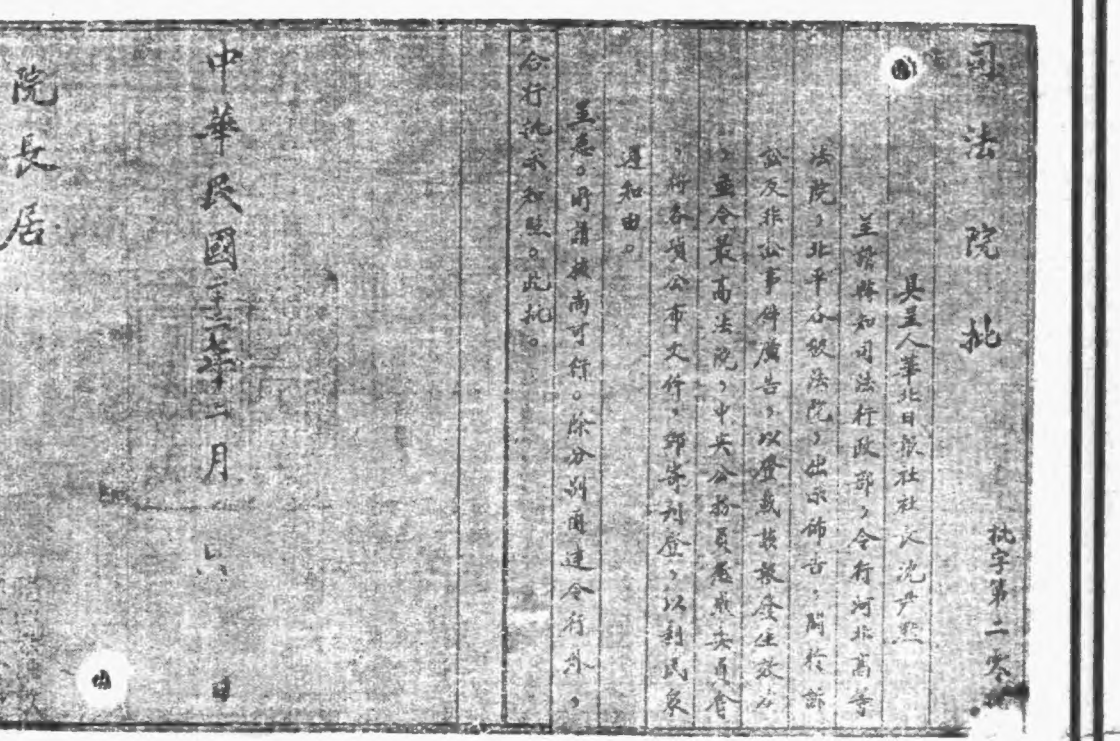 司法院批
批字第二零
具呈人華北日報社社長沈尹默
呈請轉知司法行政部，令行河北高等
法院，北平各級法院，出示佈告，關於訴
訟及非訟事件廣告，以登載該報發生效力
，並令最高法院，中央公務員懲戒委員會
，將各項公布文件，郵寄刊登，以利民眾
週知由。
呈悉。所請核尚可行。除分別函達令行外，
合行批示知照。此批。
中華民國二十二年二月 六 日
院長居